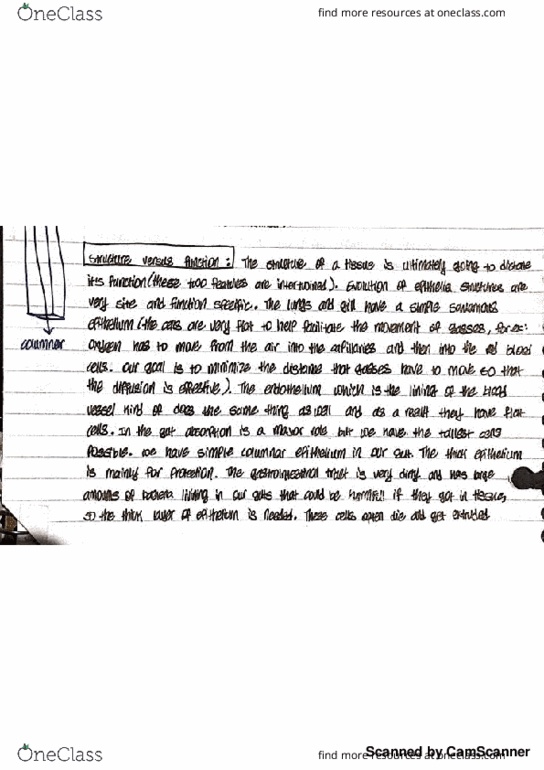 OneClass
find more resources at oneclass.com
structure versus function: The structure of a tissue is ultimately going to dictate
its function (these two features are intertwined). Evolution of epithelia structures are
very site and function specific. The lungs and gill have a simple squamous
epithelium (the cells are very flat to help facilitate the movement of gasses, for ex:
columnar
oxygen has to move from the air into the capillaries and then into the red blood
cells. our goal is to minimize the distance that gasses have to move so that
the diffusion is effective). The endothelium which is the lining of the blood
vessel kind of does the same thing as well and as a result they have flat
cells. In the gut absorption is a major role but we have the tallest cells
possible. we have simple columnar epithelium in our gut. The thick epithelium
is mainly for protection. The gastrointestinal tract is very dirty and has large
amounts of bacteria living in our guts that could be harmful if they got in tissue,
so the thick layer of epithelium is needed. These cells often die and get extruded
OneClass
find more resources at oneclass.com
Scanned by CamScanner